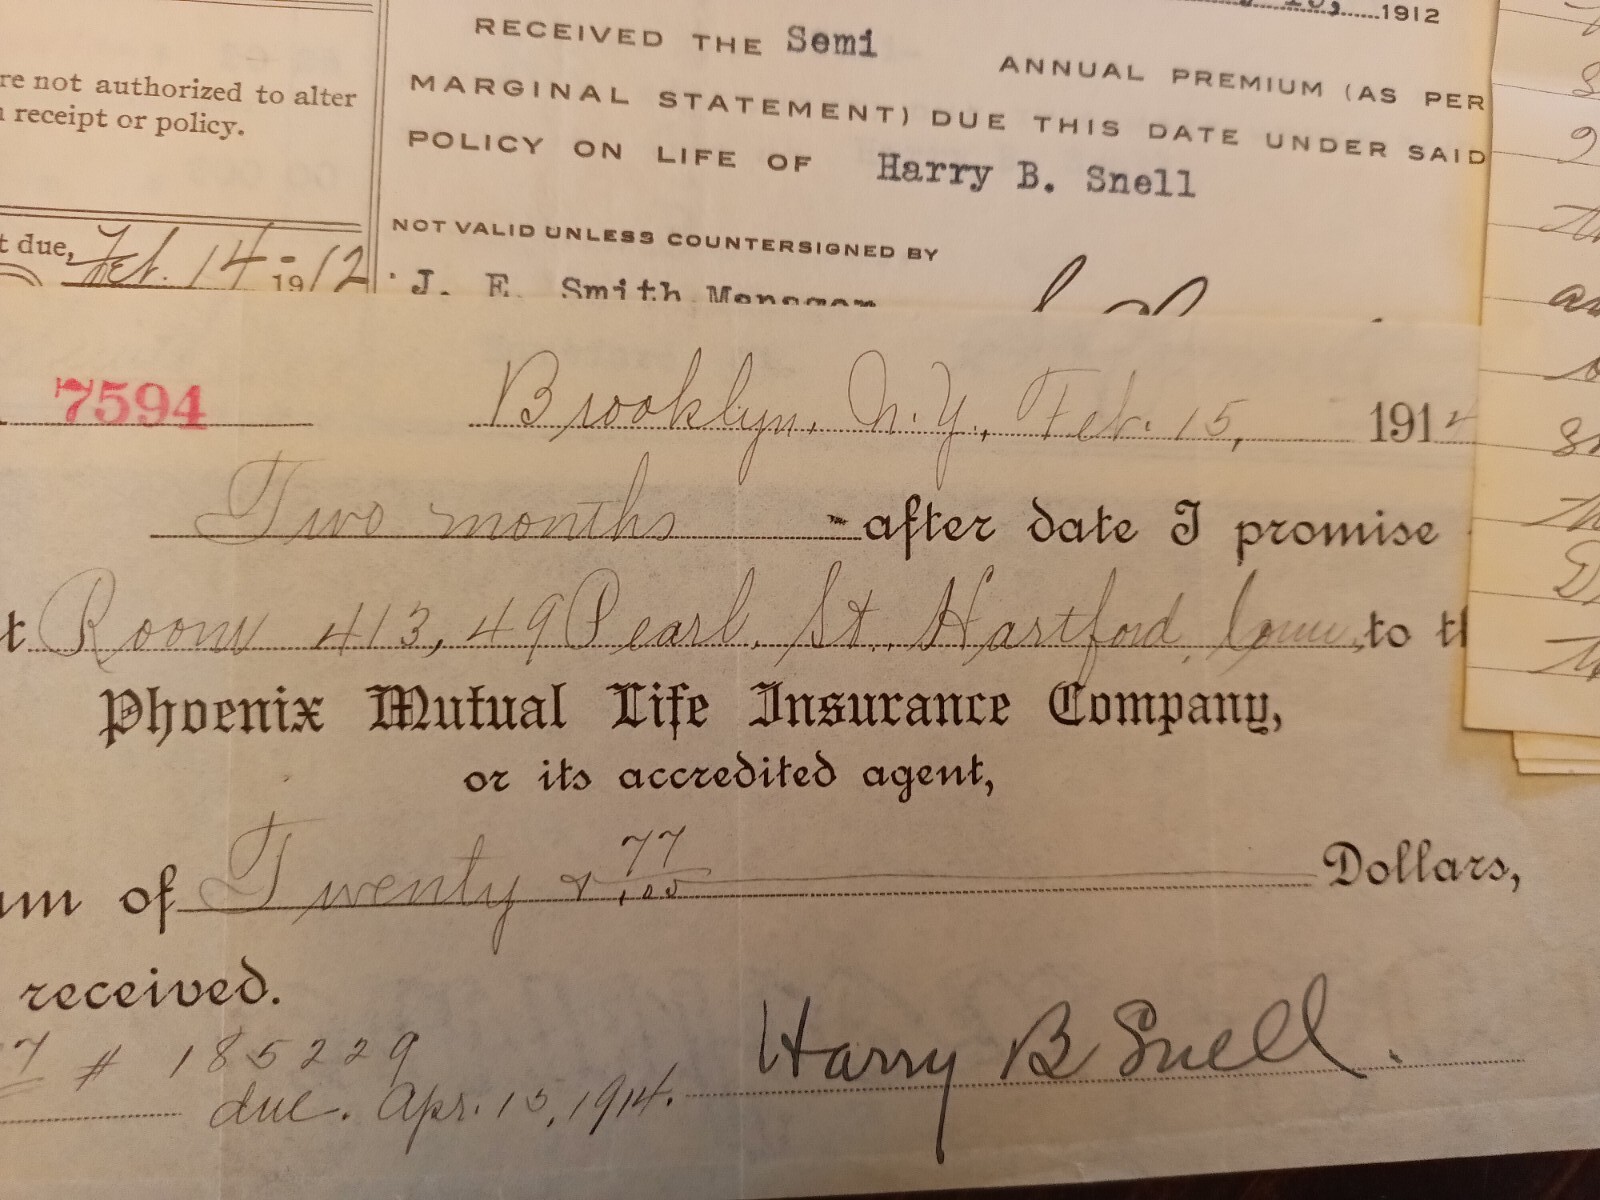 1912
RECEIVED THE Semi ANNUAL PREMIUM (AS PER
MARGINAL STATEMENT) DUE THIS DATE UNDER SAID
POLICY ON LIFE OF Harry B. Snell
NOT VALID UNLESS COUNTERSIGNED BY
J. E. Smith Manager
re not authorized to alter
receipt or policy.
t due, Feb. 14 - 1912
7594 Brooklyn, N.Y., Feb. 15, 1914
Two months after date I promise
t Room 413, 49 Pearl. St. Hartford, Conn, to th
Phoenix Mutual Life Insurance Company,
or its accredited agent,
um of Twenty & 77/100 Dollars,
received.
7 # 185229
due. Apr. 15, 1914. Harry B Snell.